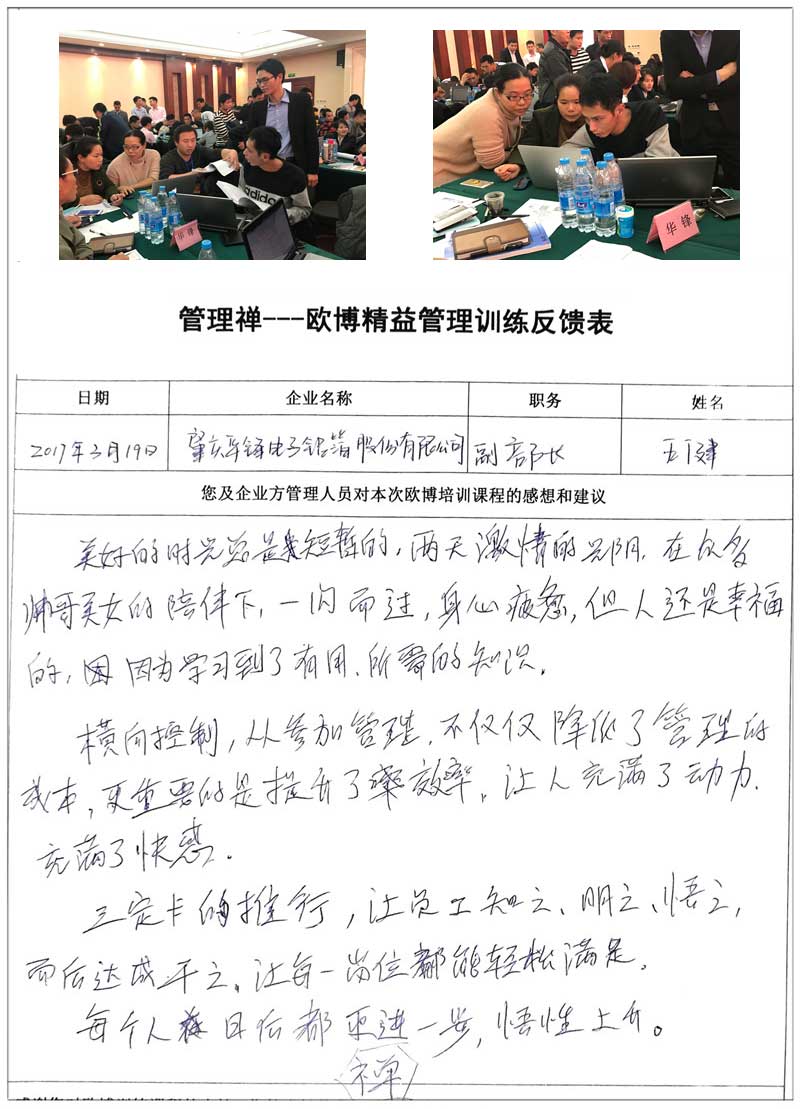 adidas
华锋
华锋
管理禅---欧博精益管理训练反馈表
日期 企业名称 职务 姓名
2017年3月19日 肇庆华锋电子铝箔股份有限公司 副部长 王健
您及企业方管理人员对本次欧博培训课程的感想和建议
美好的时光总是短暂的，两天激情的光阴，在众多
帅哥美女的陪伴下，一闪而过，身心疲惫，但人还是幸福
的，因为学习到了有用、所需的知识。
横向控制，从参加管理，不仅仅降低了管理的
成本，更重要的是提升了效率，让人充满了动力，
充满了快感。
三定卡的推行，让员工知之、明之、悟之，
而后达成干之，让每一岗位都能轻松满足。
每个人日后都更进一步，悟性上升。
禅